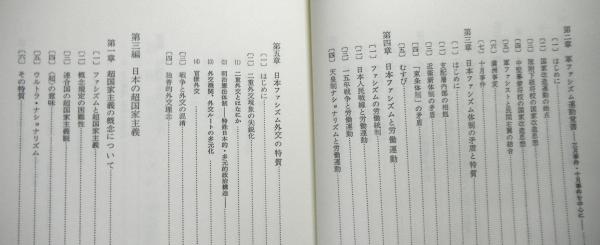 第二章 軍ファシズム運動覚書――三月事件・十月事件を中心に――
〔一〕 はじめに
〔二〕 国家改造運動の拠点
〔三〕 陸軍下級将校の国家改造思想
〔四〕 中堅幕僚将校の国家改造思想
〔五〕 軍ファシストと民間右翼の結合
〔六〕 満洲事変
〔七〕 十月事件
第三章 日本ファシズム体制の矛盾と特質
〔一〕 はじめに
〔二〕 支配層内部の相剋
〔三〕 近衛新体制の矛盾
〔四〕 「東条体制」の矛盾
〔五〕 むすび
第四章 日本ファシズムと労働運動
〔一〕 ファシズムの労働統制
〔二〕 日本人民戦線と労働運動
〔三〕 一五年戦争と労働運動
〔四〕 天皇制ナショナリズムと労働運動
第五章 日本ファシズム外交の特質
〔一〕 はじめに
〔二〕 二重外交現象の尖鋭化
(1) 二重外交とはなにか
(2) 明治憲法体制――特殊日本的・多元的政治構造――
(3) 外交機関、外交ルートの多元化
(4) 官僚外交
〔三〕 戦争と外交の混淆
〔四〕 独善的外交理念
第三編 日本の超国家主義
第一章 超国家主義の概念について
〔一〕 ファシズムと超国家主義
〔二〕 概念規定の困難性
〔三〕 連合国の超国家主義観
〔四〕 〈超〉の意味
〔五〕 ウルトラ・ナショナリズム
〔六〕 その特質